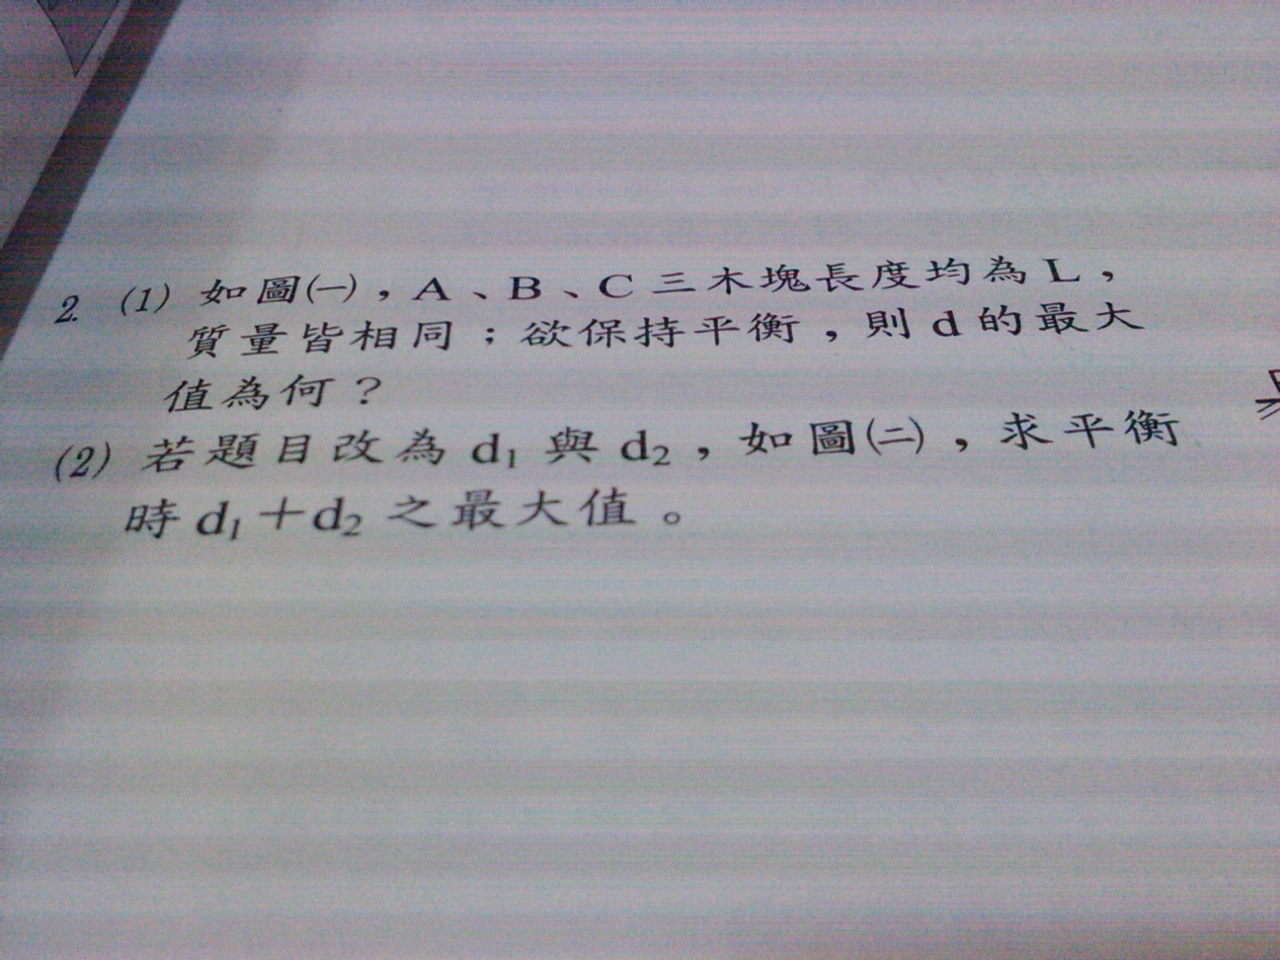 2. (1) 如圖㈠，A、B、C三木塊長度均為L，
質量皆相同；欲保持平衡，則d的最大
值為何？
(2) 若題目改為d₁與d₂，如圖㈡，求平衡
時d₁＋d₂之最大值。